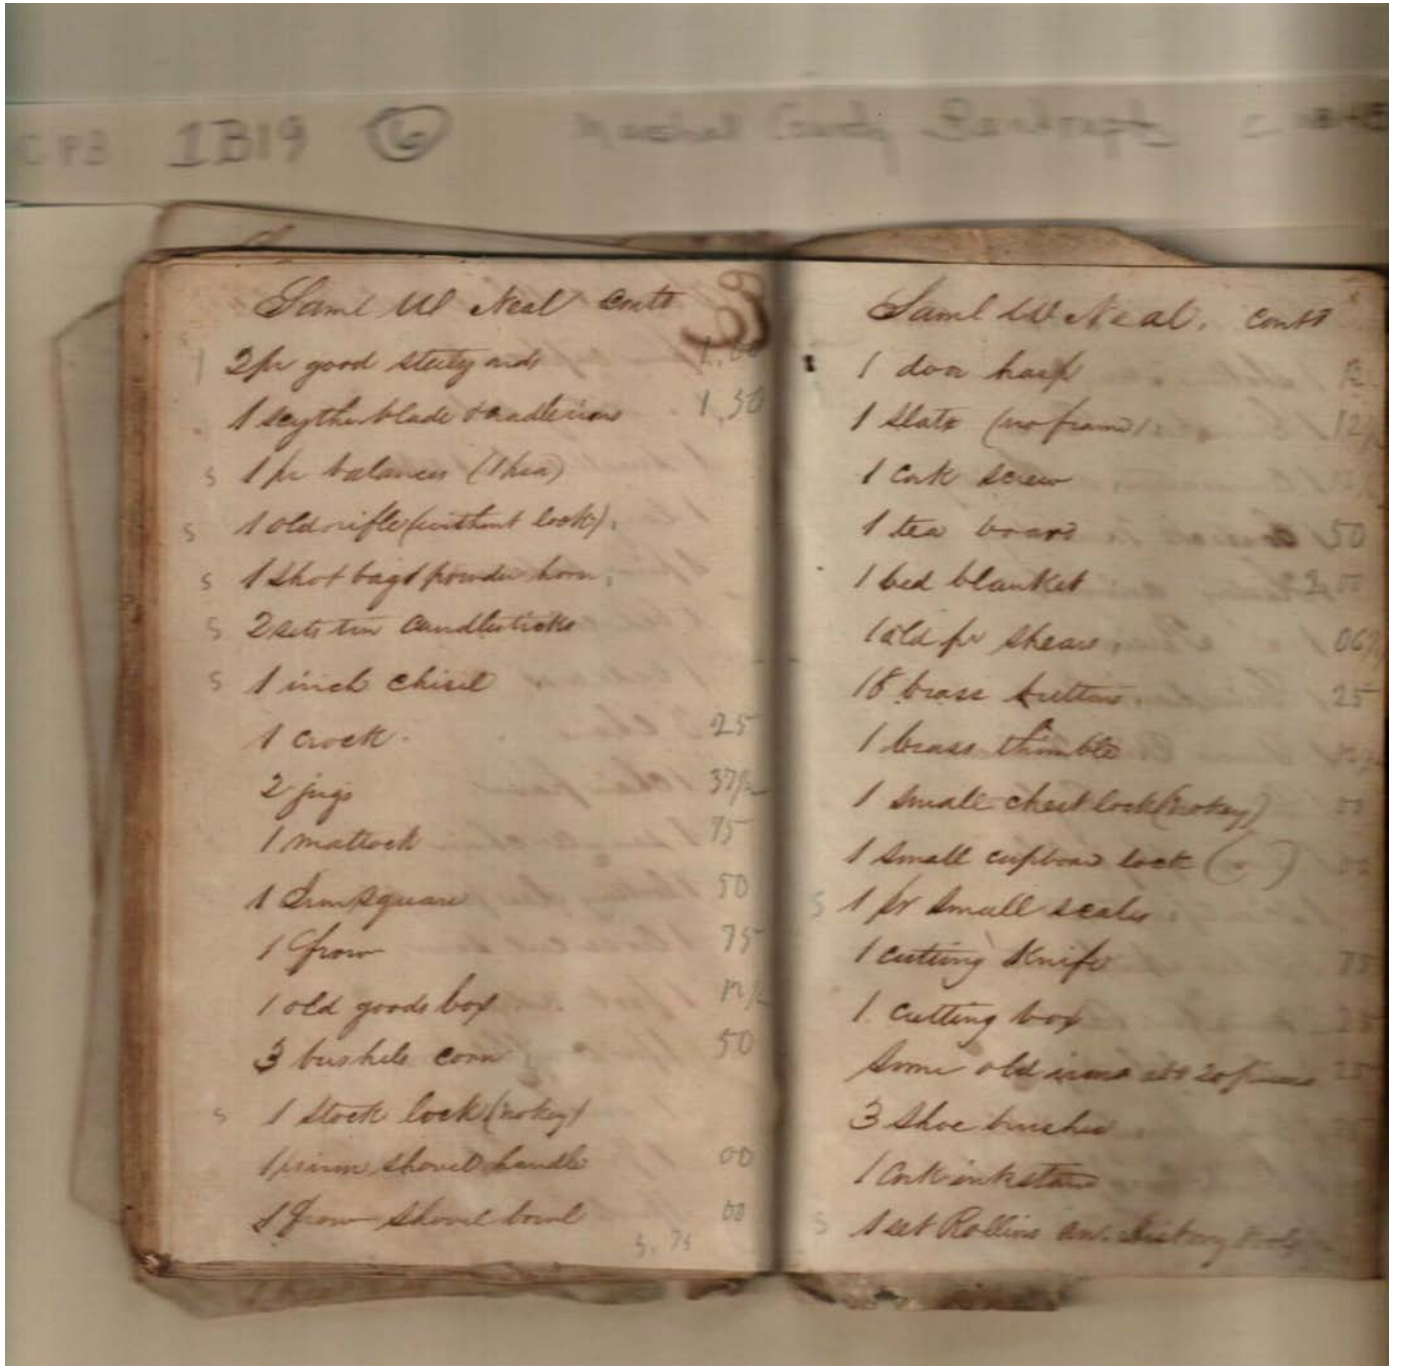 1B19 6
Saml W Neal Contd
2 pr good steelyards 1.00
1 scythe blade & cradle irons 1.50
s 1 pr balances
s 1 old rifle (without lock)
s 1 shot bag & powder horn
s 2 sets tin candlesticks
s 1 inch chisel
1 crock 25
2 jugs 37½
1 mattock 75
1 square 50
1 frow 75
1 old goods box 12½
3 bushels corn 50
s 1 stock lock (no key)
1 shovel handle 00
1 shovel bowl 00
5.75
Saml W Neal. Contd
1 door hasp
1 slate (no frame) 12½
1 cork screw
1 tea board 50
1 bed blanket
1 old pr shears 06¼
18 brass buttons 25
1 brass thimble
1 small chest lock (no key)
1 small cupboard lock ( " )
s 1 pr small scales
1 cutting Knife 75
1 cutting box
Some old irons abt 20 pieces 25
3 shoe brushes
1 Cork inkstand
s 1 set Rollins